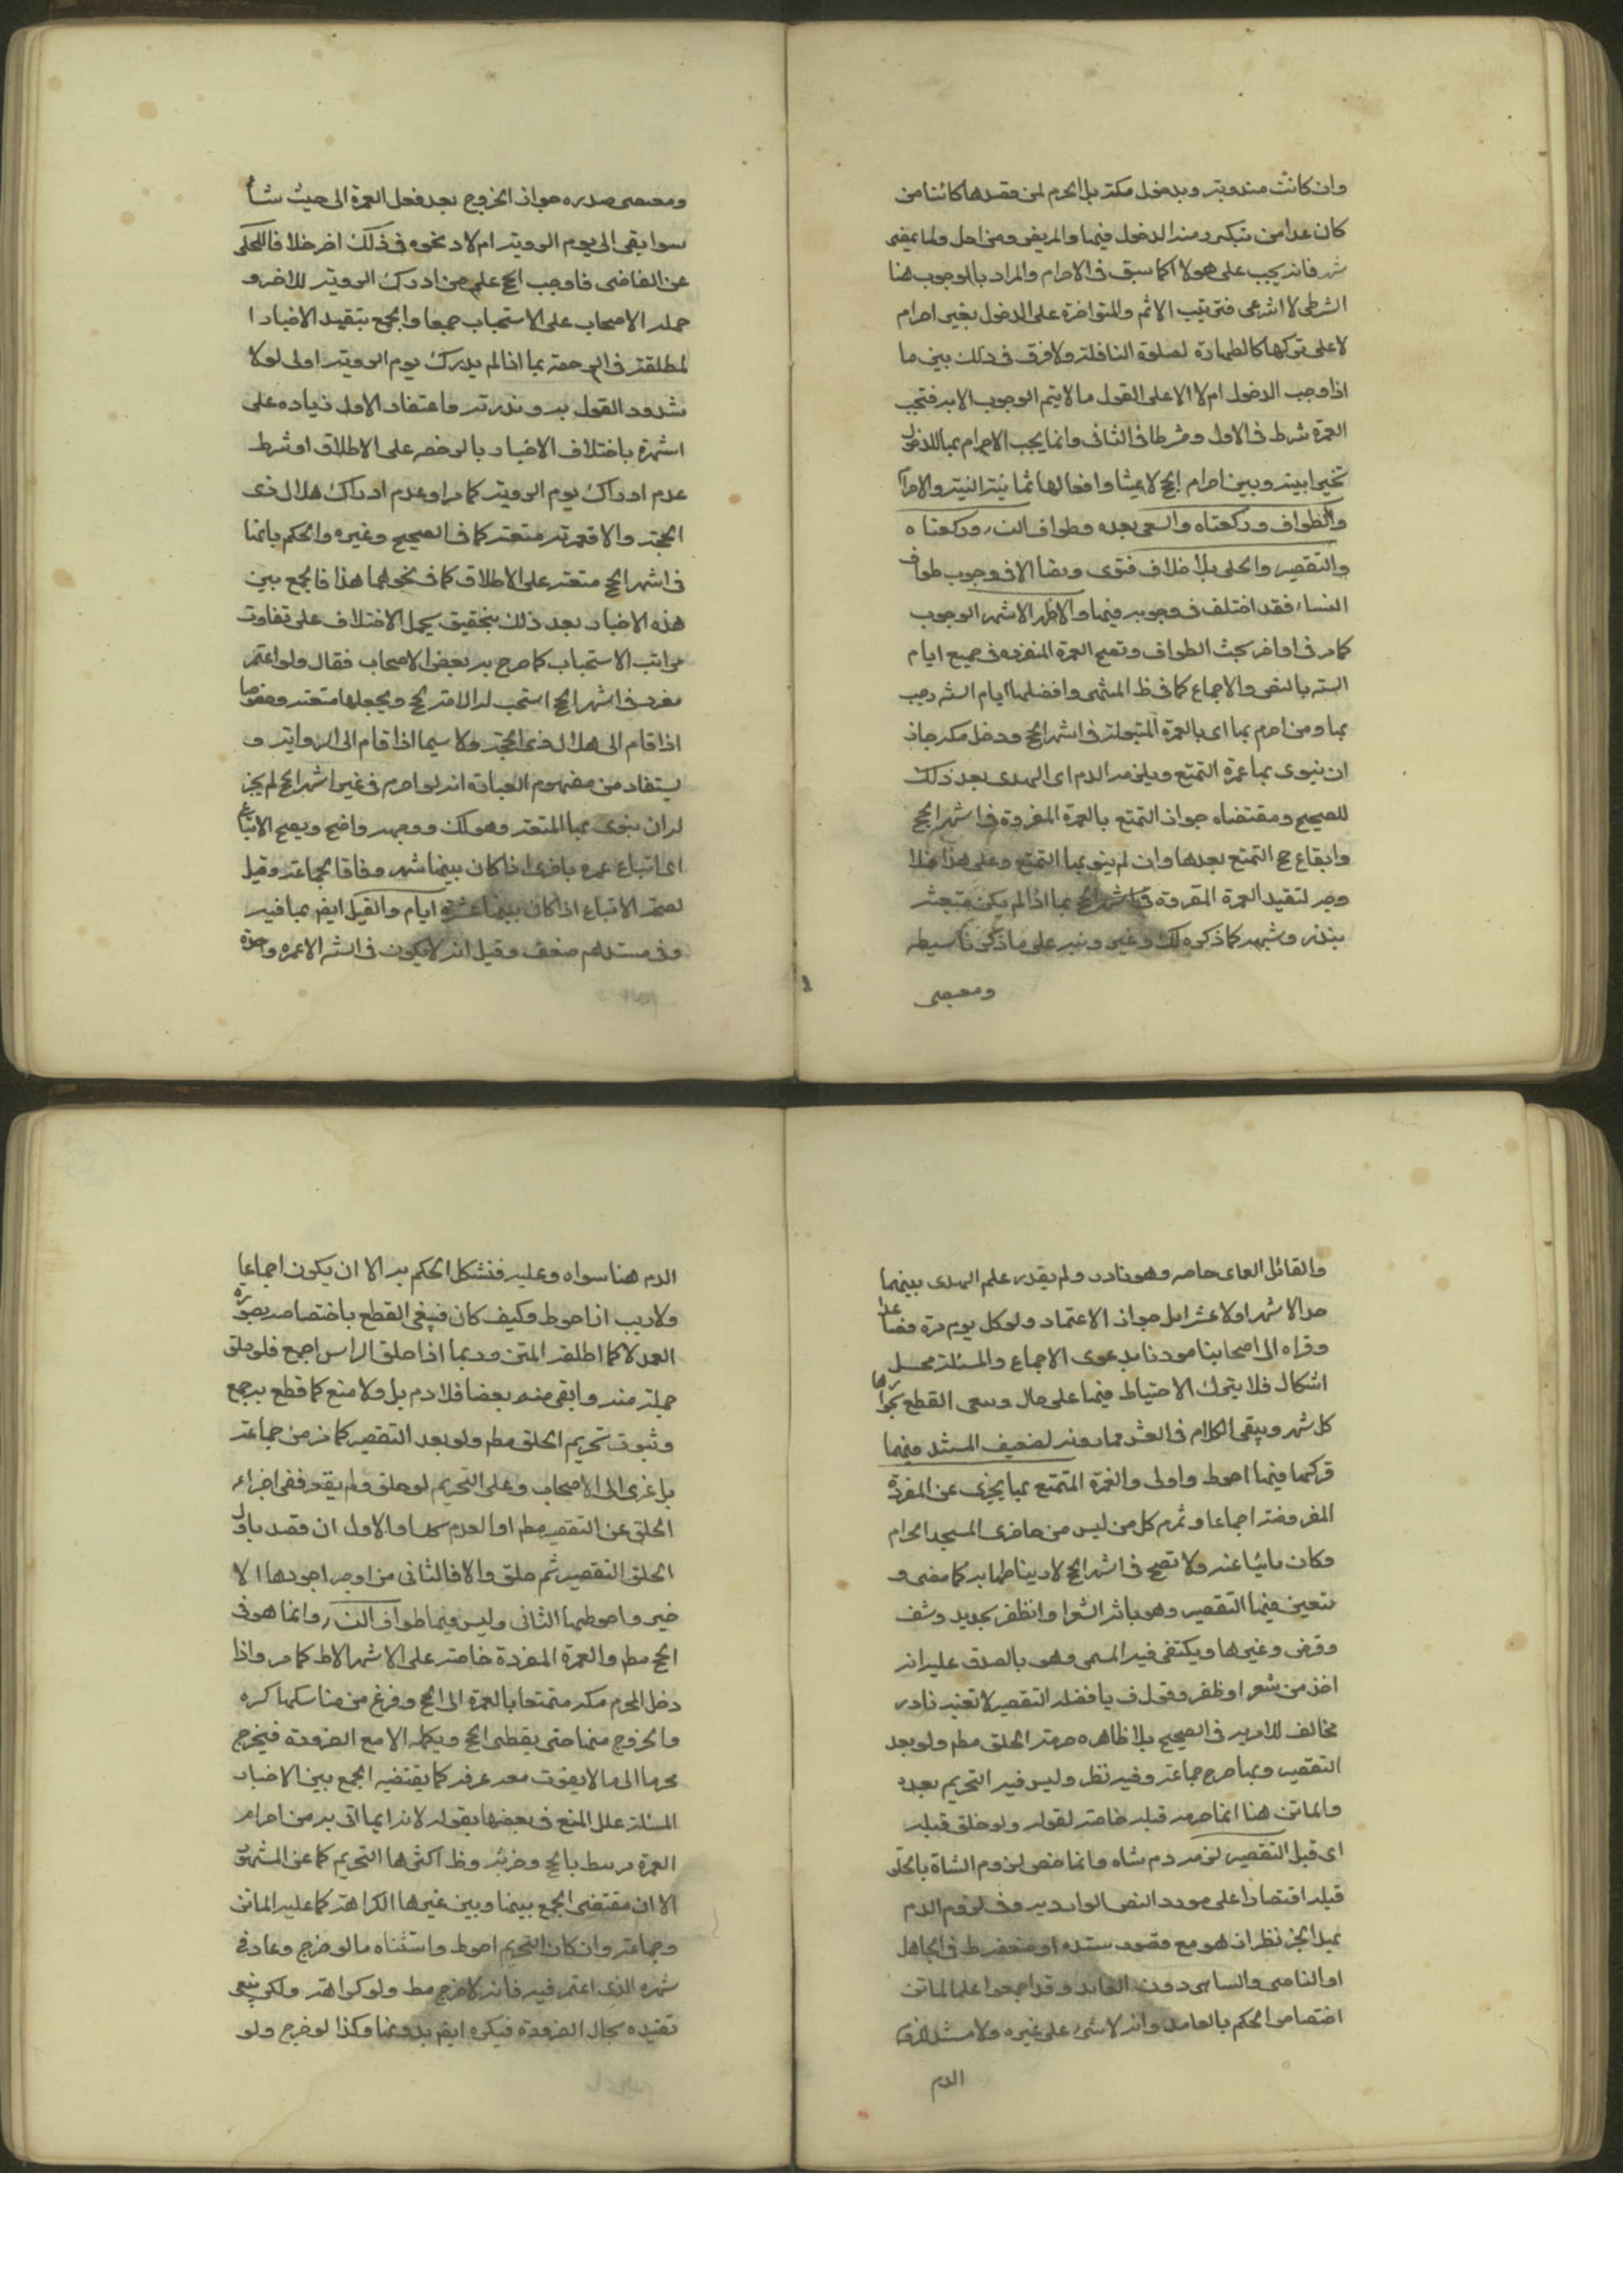 وان كانت مندوبة وبدخول مكة بل الحرم لمن قصدها كائنا من
كان عدا من يتكرر منه الدخول فيها والمريض ومن احل ولما يمض
شهر فانه يجب على هولا كما سبق فى الاحرام والمراد بالوجوب هنا
الشرطى لا الشرعى فترتب الاثم والمؤاخذة على الدخول بغير احرام
لا على تركها كالطهارة لصلوة النافلة ولا فرق فى ذلك بين ما
اذا وجب الدخول ام لا الا على القول ما لا يتم الوجوب الا به فتجب
العمرة شرط فى الاول وشرطا فى الثانى وانما يجب الاحرام بها للدخول
تخييرا بينه وبين احرام الحج لا عينا وافعالها ثمانية النية والاحرام
والطواف وركعتاه والسعى بعده وطواف النساء وركعتاه
والتقصير والحلق بلا خلاف فتوى ونصا الا فى وجوب طواف
النساء فقد اختلف فى وجوبه فيها والاظهر الاشهر الوجوب
كما مر فى اواخر بحث الطواف وتصح العمرة المفرده فى جميع ايام
السنه بالنص والاجماع كما فى ظ المنتهى وافضلها ايام السنه رجب
بها ومن احرم بها اى بالعمرة المتبولة فى اشهر الحج ودخل مكه جاز
ان ينوى بها عمرة التمتع ويلزمه الدم اى الهدى بعد ذلك
للصحيح ومقتضاه جواز التمتع بالعمرة المفردة فى اشهر الحج
وايقاع حج التمتع بعدها وان لم ينو بها التمتع وعلى هذا فلا
وجه لتقيد العمرة المفردة فى اشهر الحج بما اذا لم يكن متعينة
بنذر وشبهه كما ذكره لك وغيره ونبه على ما ذكرنا سبطه
ومقتضى
ومقتضى صدره جواز الخروج بعد فعل العمرة الى حيث شاء
سوا بقى الى يوم التروية ام لا ونحوه فى ذلك اخر خلافا للمحكى
عن القاضى فاوجب الحج على من ادرك التروية للاخر و
حمله الاصحاب على الاستحباب جمعا والجمع بتقييد الاخبار ا
لمطلقة فى الرخصة بما اذا لم يدرك يوم التروية اولى لولا
شذوذ القول به وندرته واعتضاد الاول زياده على
اشهرة باختلاف الاخبار بالرخصه على الاطلاق او شرط
عدم ادراك يوم التروية كما مر او عدم ادراك هلال ذى
الحجة والا فعمرته متعة كما فى الصحيح وغيره والحكم بانها
فى اشهر الحج متعة على الاطلاق كما فى نحوهما هذا فالجمع بين
هذه الاخبار بعد ذلك بتحقيق يحمل الاختلاف على تفاوت
مراتب الاستحباب كما صرح به بعض الاصحاب فقال ولو اعتمر
مفردة فى اشهر الحج استحب له الاقامة ليحج ويجعلها متعة وخصوصا
اذا قام الى هلال ذى الحجة ولا سيما اذا قام الى التروية و
يستفاد من مفهوم العبارة انه لو احرم فى غير اشهر الحج لم يجز
له ان ينوى بها المتعة وهو لك ووجهه واضح ويصح الاتباع
اى اتباع عمره باخرى اذا كان بينهما شهر وفاقا لجماعة وقيل
لصحة الاتباع اذا كان بينهما عشرة ايام والقيل ايض بها فيه
وفى مستندهم ضعف وقيل انه لا يكون فى السنه الا عمره واحدة
والقائل العمانى خاصه وهو نادر ولم يقدر علم الهدى بينهما
حدا لا شهرا ولا عشرا بل جواز الاعتماد ولو كل يوم مرة فصاعدا
وقراه الى اصحابنا موذنا بدعوى الاجماع والمسئلة محل
اشكال فلا يترك الاحتياط فيها على حال وينبغى القطع بجوازها
كل شهر ويبقى الكلام فى العشر فما دونه لضعيف المسند فيهما
فتركهما فيهما احوط واولى والعمرة المتمتع بها يجزى عن المفردة
المفروضة اجماعا وتلزم كل من ليس من حاضرى المسجد الحرام
وكان نائيا عنه ولا تصح فى اشهر الحج لارتباطها به كما مضى و
يتعين فيها التقصير وهو بانه الشعر او الظفر بحديد ونتف
وقرض وغيرها ويكتفى فيه المسمى وهو بالصدق عليه انه
اخذ من شعر او ظفر وقول ف يا فضله التقصير لا نعتد نادر
مخالف للادرية فى الصحيح بلا ظاهره حرمة الحلق مط ولو بعد
التقصير وبها صرح جماعة وفيه نظر وليس فيه التحريم بعده
والماتن هنا انما حرمه قبله خاصة لقوله ولو حلق قبله
اى قبل التقصير لزمه دم شاه وانما خص لزوم الشاة بالحلق
قبله اقتصارا على مورد النص الوارد به وفى لزوم الدم
بهذا الخبر نظر اذ هو مع قصور سنده او ضعفه ط فى الجاهل
او الناسى والساهى دون العامد وقد اجمعوا علما الماتن
اختصاص الحكم بالعامد وانه لا شئ على غيره ولا مستند للزوم
الدم
الدم هنا سواه وعليه فيشكل الحكم به الا ان يكون اجماعيا
ولا ريب انه احوط وكيف كان فينبغى القطع باختصاصه بصورة
العمد لا كما اطلقه المتن وبما اذا حلق الراس اجمع فلو حلق
جملة منه وابقى منه بعضا فلا دم بل ولا منع كما قطع به جمع
وثبوت تحريم الحلق مط ولو بعد التقصير كما مر من جماعة
بل عزى الى الاصحاب وعلى التحريم لو حلق ولم يقصر ففى اجزاء
الحلق عن التقصير مط او العدم كك او الاول ان قصد باول
الحلق التقصير ثم حلق والا فالثانى من اوجه اجودها الا
خير واحوطها الثانى وليس فيها طواف النساء وانما هو فى
الحج مط والعمرة المفردة خاصة على الاشهر الاظ كما مر واذا
دخل المحرم مكه متمتعا بالعمرة الى الحج وفرغ من مناسكها كره
والخروج منها حتى يقضى الحج ويكمله الا مع الضرورة فيخرج
محرما الى ما لا يفوت معه عرفه كما يقتضيه الجمع بين الاخبار
المسئلة علل المنع فى بعضها بقوله لانه ايما اتى به من احرام
العمرة مرتبط بالحج وجزئه وظ اكثرها التحريم كما عن المشهور
الا ان مقتضى الجمع بينها وبين غيرها الكراهة كما عليه الماتن
وجماعة وان كان التحريم احوط واستثناه ما لو خرج وعاد فى
شهره الذى اعتمر فيه فانه لا حرج مط ولو كراهة ولكن ينبغى
تقيده بحال الضرورة فيكره ايض بدونها وكذا لو خرج ولو